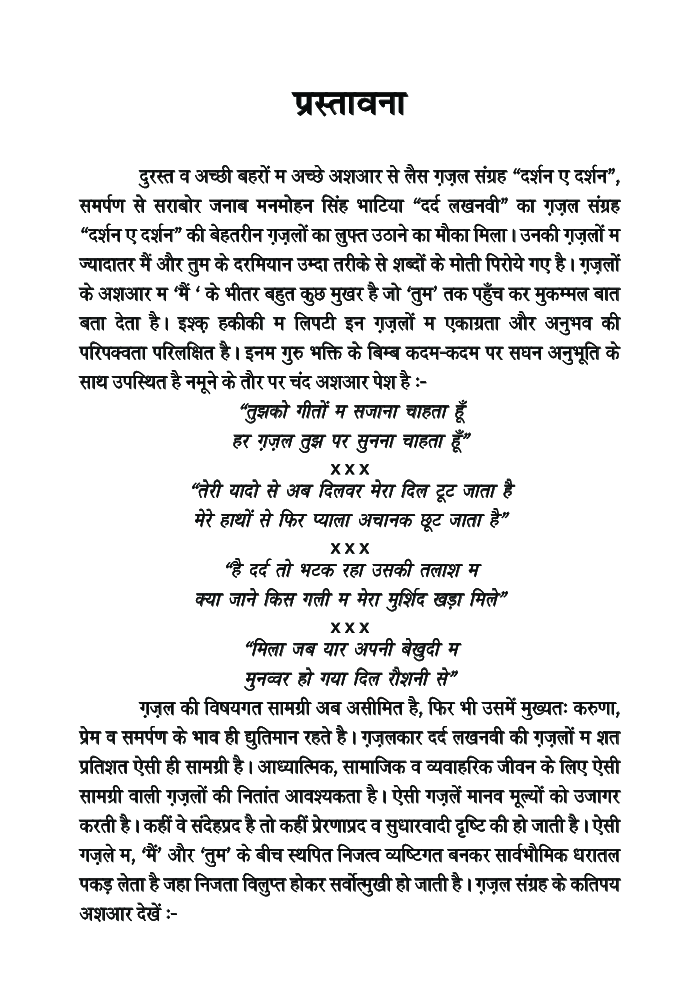 प्रस्तावना
दुरस्त व अच्छी बहरों म अच्छे अशआर से लैस ग़ज़ल संग्रह “दर्शन ए दर्शन”,
समर्पण से सराबोर जनाब मनमोहन सिंह भाटिया “दर्द लखनवी” का ग़ज़ल संग्रह
“दर्शन ए दर्शन” की बेहतरीन ग़ज़लों का लुफ्त उठाने का मौका मिला। उनकी ग़ज़लों म
ज्यादातर मैं और तुम के दरमियान उम्दा तरीके से शब्दों के मोती पिरोये गए है। ग़ज़लों
के अशआर म ‘मैं ‘ के भीतर बहुत कुछ मुखर है जो ‘तुम’ तक पहुँच कर मुकम्मल बात
बता देता है। इश्क़ हकीकी म लिपटी इन ग़ज़लों म एकाग्रता और अनुभव की
परिपक्वता परिलक्षित है। इनम गुरु भक्ति के बिम्ब कदम-कदम पर सघन अनुभूति के
साथ उपस्थित है नमूने के तौर पर चंद अशआर पेश है :-
“तुझको गीतों म सजाना चाहता हूँ
हर ग़ज़ल तुझ पर सुनना चाहता हूँ”
x x x
“तेरी यादो से अब दिलवर मेरा दिल टूट जाता है
मेरे हाथों से फिर प्याला अचानक छूट जाता है”
x x x
“है दर्द तो भटक रहा उसकी तलाश म
क्या जाने किस गली म मेरा मुर्शिद खड़ा मिले”
x x x
“मिला जब यार अपनी बेखुदी म
मुनव्वर हो गया दिल रौशनी से”
ग़ज़ल की विषयगत सामग्री अब असीमित है, फिर भी उसमें मुख्यतः करुणा,
प्रेम व समर्पण के भाव ही द्युतिमान रहते है। ग़ज़लकार दर्द लखनवी की ग़ज़लों म शत
प्रतिशत ऐसी ही सामग्री है। आध्यात्मिक, सामाजिक व व्यवाहरिक जीवन के लिए ऐसी
सामग्री वाली ग़ज़लों की नितांत आवश्यकता है। ऐसी गज़लें मानव मूल्यों को उजागर
करती है। कहीं वे संदेहप्रद है तो कहीं प्रेरणाप्रद व सुधारवादी दृष्टि की हो जाती है। ऐसी
गज़ले म, ‘मैं’ और ‘तुम’ के बीच स्थपित निजत्व व्यष्टिगत बनकर सार्वभौमिक धरातल
पकड़ लेता है जहा निजता विलुप्त होकर सर्वोत्मुखी हो जाती है। ग़ज़ल संग्रह के कतिपय
अशआर देखें :-